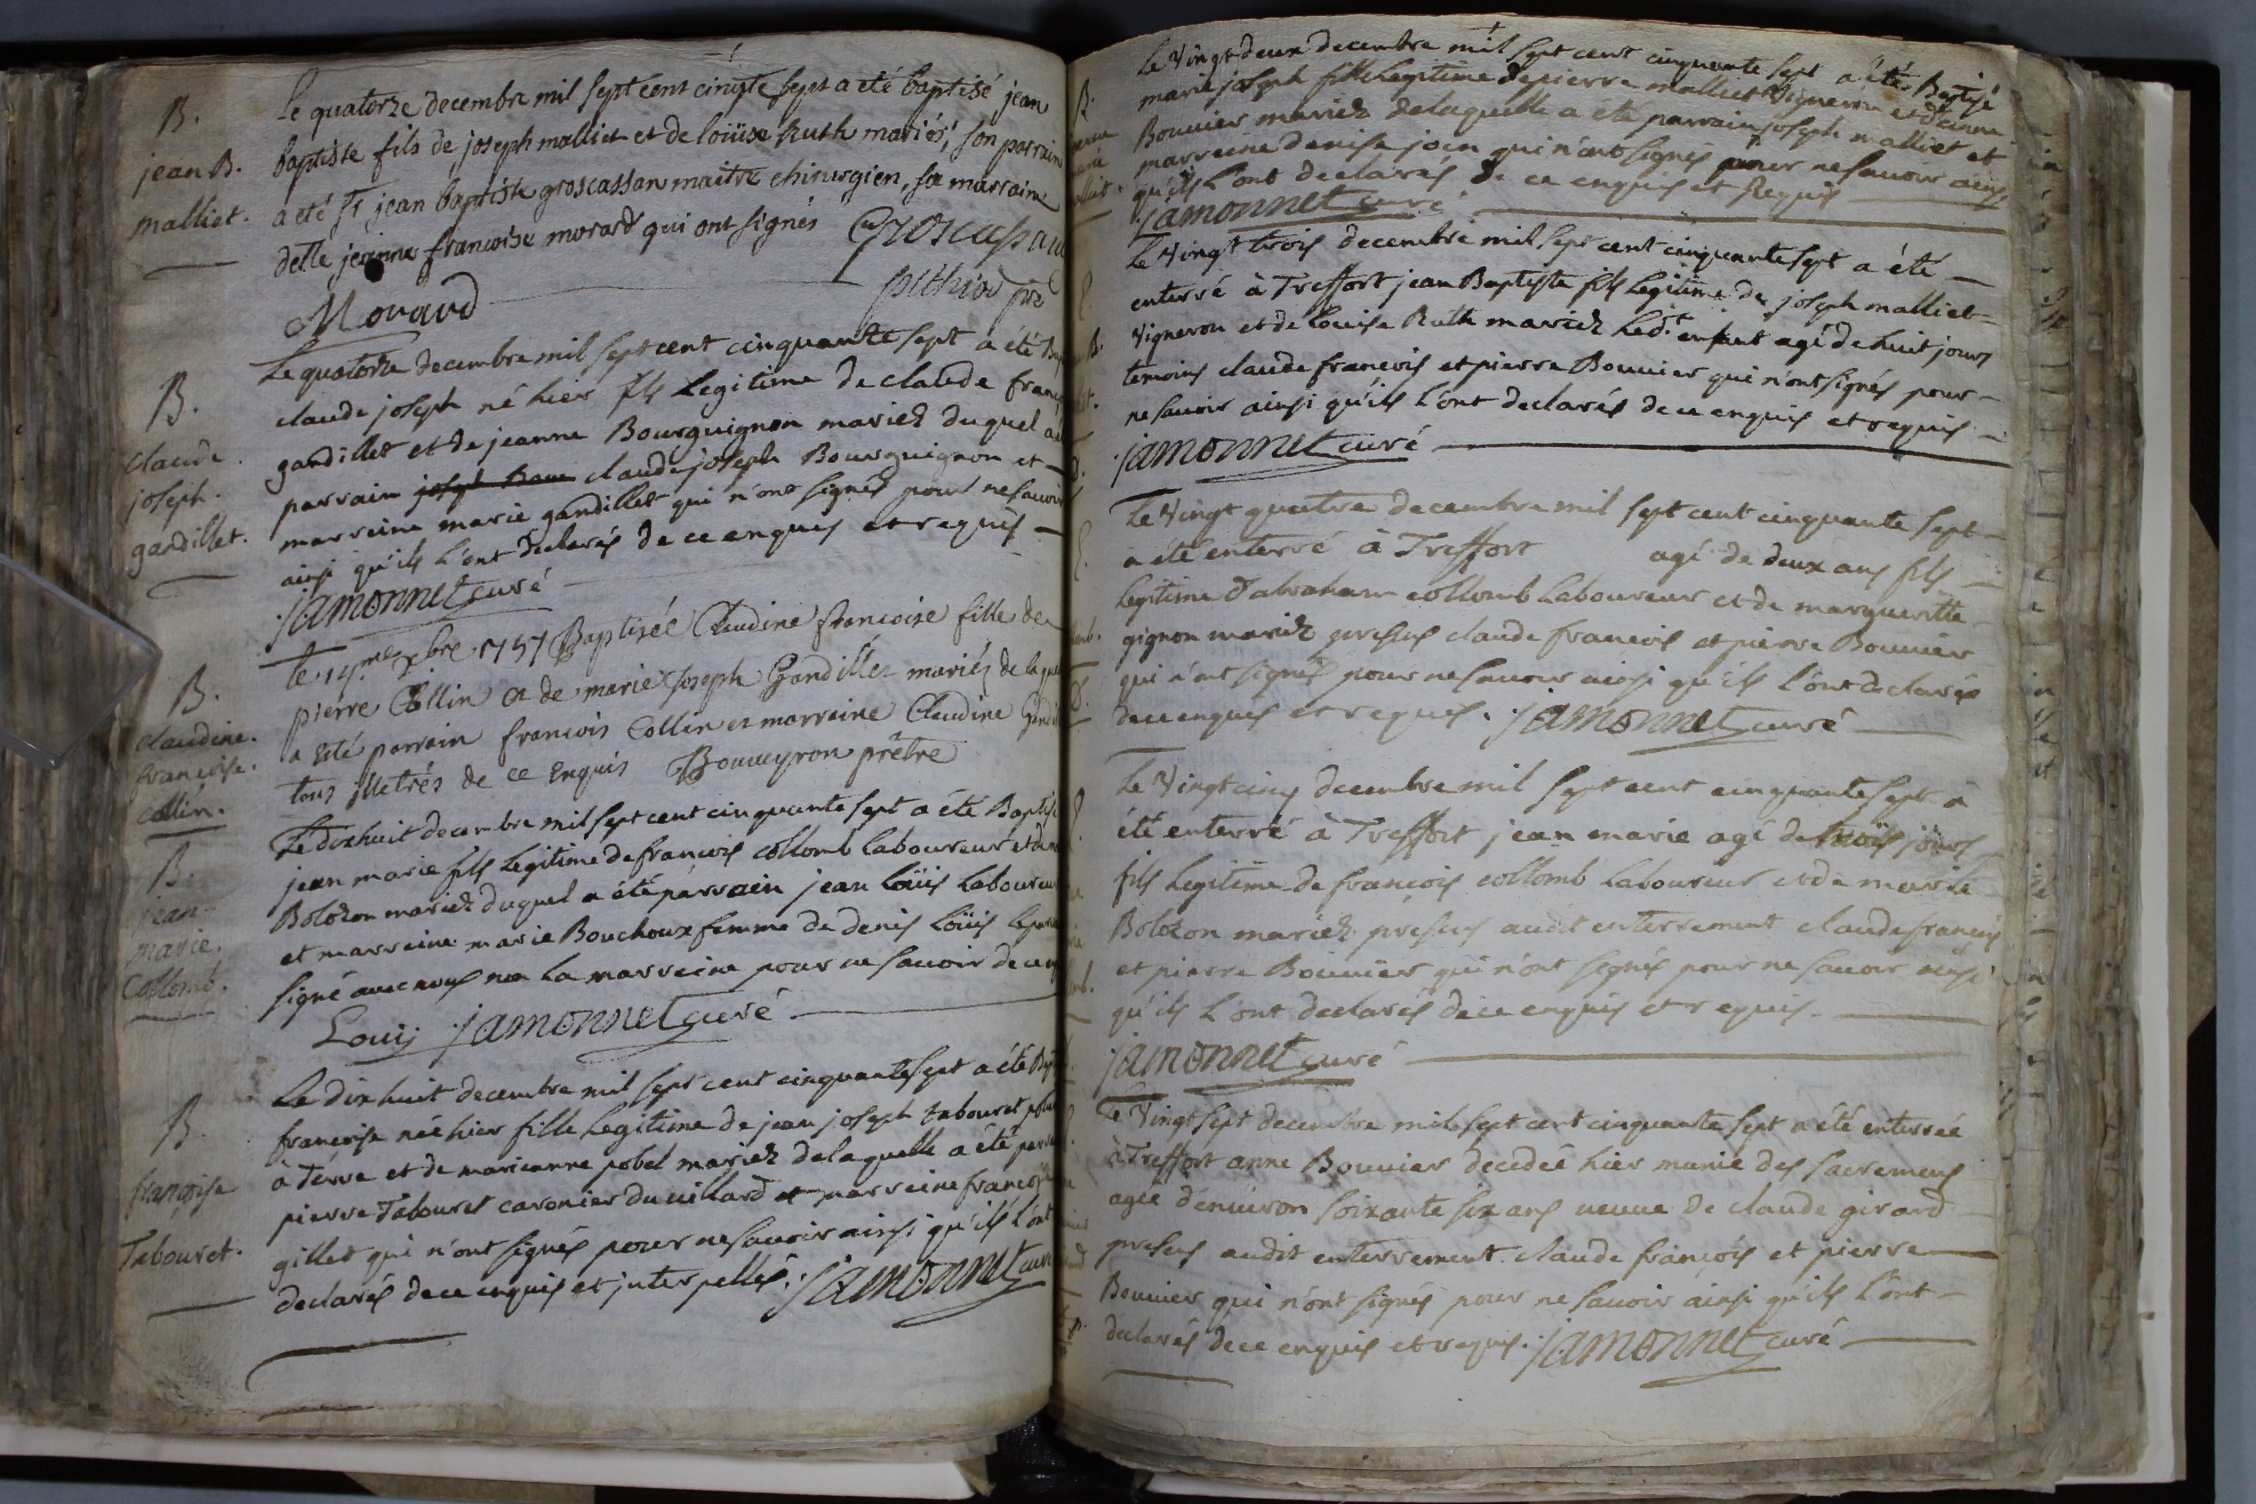 B.
jean B.
malliet.
Le quatorze decembre mil sept cent cinqte sept a eté baptisé jean
baptiste fils de joseph malliet et de loüise Ruth mariés, son parrain
a eté sr jean baptiste groscassan maitre chirurgien, sa marraine
delle jeanne francoise morard qui ont signés Groscassan
Morard
pithiod pre
B.
claude
joseph.
gandillet.
Le quatorze decembre mil sept cent cinquante sept a été
claude joseph né hier fils legitime de claude
gandillet et de jeanne Bourguignon mariez duquel a
parrain claude joseph Bourguignon et
marreine marie gandillet qui n'ont signés pour ne savoir
ainsi qu'ils l'ont declarés de ce enquis et requis
jamonnet curé
B.
claudine.
francoise.
collin.
Le 14.me xbre 1757 Baptisée Claudine francoise fille de
pierre Collin et de marie Joseph Gandillet mariés de la
a Esté parrain francois Collin et marraine Claudine
tous illetrés de ce Enquis Bouveyron prêtre
B.
jean
marie.
Collomb.
Le dixhuit decembre mil sept cent cinquante sept a été
jean marie fils legitime de francois collomb laboureur et de
Bolozon mariez duquel a été parrain jean loüis laboureur
et marreine marie Bouchoux femme de denis loüis
signé avec nous non la marreine pour ne savoir de ce
Louis jamonnet curé
B.
françoise
Tabouret.
Le dix huit decembre mil sept cent cinquante sept a été
francoise née hier fille legitime de jean joseph tabouret
à terre et de marianne pobel mariez de laquelle a été
pierre Tabouret caronier du villard et marreine francoise
gillet qui n'ont signés pour ne savoir ainsi qu'ils l'ont
declarés de ce enquis et interpellés. jamonnet curé
Le Vingt deux decembre mil sept cent cinquante sept a été Baptisé
marie joseph fille legitime de pierre malliet Vigneron et d'anne
Bouvier mariez de laquelle a été parrain joseph malliet et
marreine denise join qui n'ont signés pour ne savoir ainsi
qu'ils l'ont declarés de ce enquis et Requis
jamonnet curé
Le Vingt trois decembre mil sept cent cinquante sept a été
enterré à Treffort jean Baptiste fils legitime de joseph malliet
Vigneron et de louise Ruth mariez led.t enfant agé de huit jours
temoins claude francois et pierre Bouvier qui n'ont signés pour
ne savoir ainsi qu'ils l'ont declarés de ce enquis et requis
jamonnet curé
Le Vingt quatre decembre mil sept cent cinquante sept
a été enterré à Treffort agé de deux ans fils
legitime d'abraham collomb laboureur et de margueritte
gignon mariez presens claude francois et pierre Bouvier
qui n'ont signés pour ne savoir ainsi qu'ils l'ont declarés
de ce enquis et requis. jamonnet curé
Le Vingt cinq decembre mil sept cent cinquante sept a
été enterré à Treffort jean marie agé de trois jours
fils legitime de françois collomb laboureur et de marie
Bolozon mariez presens audit enterrement claude françois
et pierre Bouvier qui n'ont signés pour ne savoir ainsi
qu'ils l'ont declarés de ce enquis et requis.
jamonnet curé
Le Vingt sept decembre mil sept cent cinquante sept a été enterrée
à Treffort anne Bouvier decedée hier munie des sacremens
agée d'environ soixante six ans veuve de claude girard
presens audit enterrement claude françois et pierre
Bouvier qui n'ont signés pour ne savoir ainsi qu'ils l'ont
declarés de ce enquis et requis. jamonnet curé